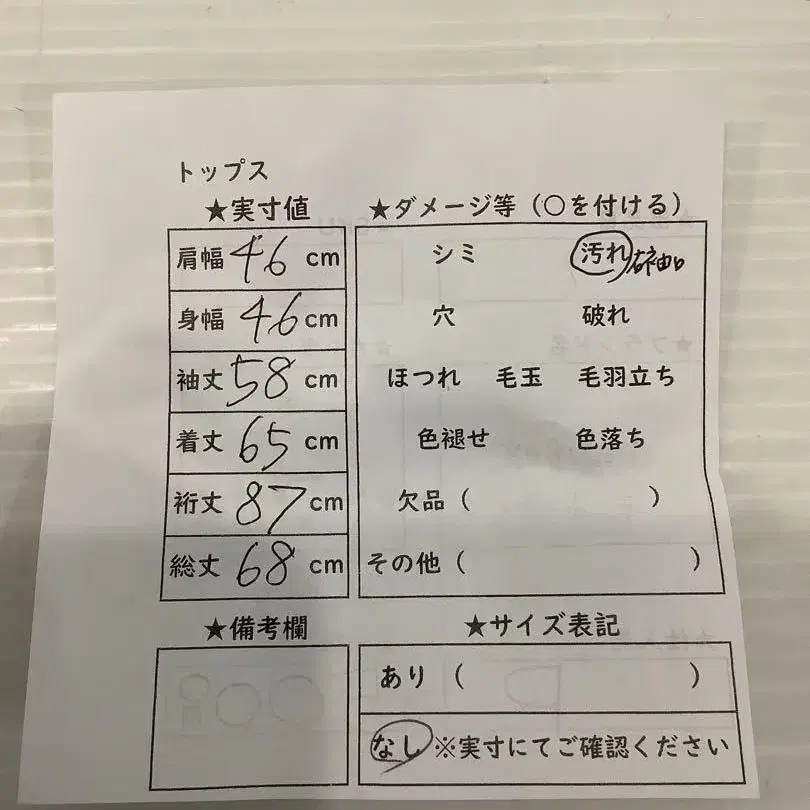 トップス
★実寸値
肩幅 46 cm
身幅 46 cm
袖丈 58 cm
着丈 65 cm
裄丈 87 cm
総丈 68 cm
★備考欄
★ダメージ等（○を付ける）
シミ 汚れ 右袖口
穴 破れ
ほつれ 毛玉 毛羽立ち
色褪せ 色落ち
欠品（ ）
その他（ ）
★サイズ表記
あり（ ）
なし ※実寸にてご確認ください